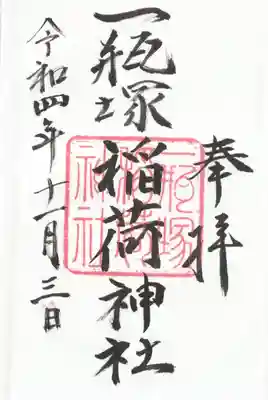 奉拝
一瓶塚稲荷神社
令和四年十一月三日
一瓶塚
稲荷
神社